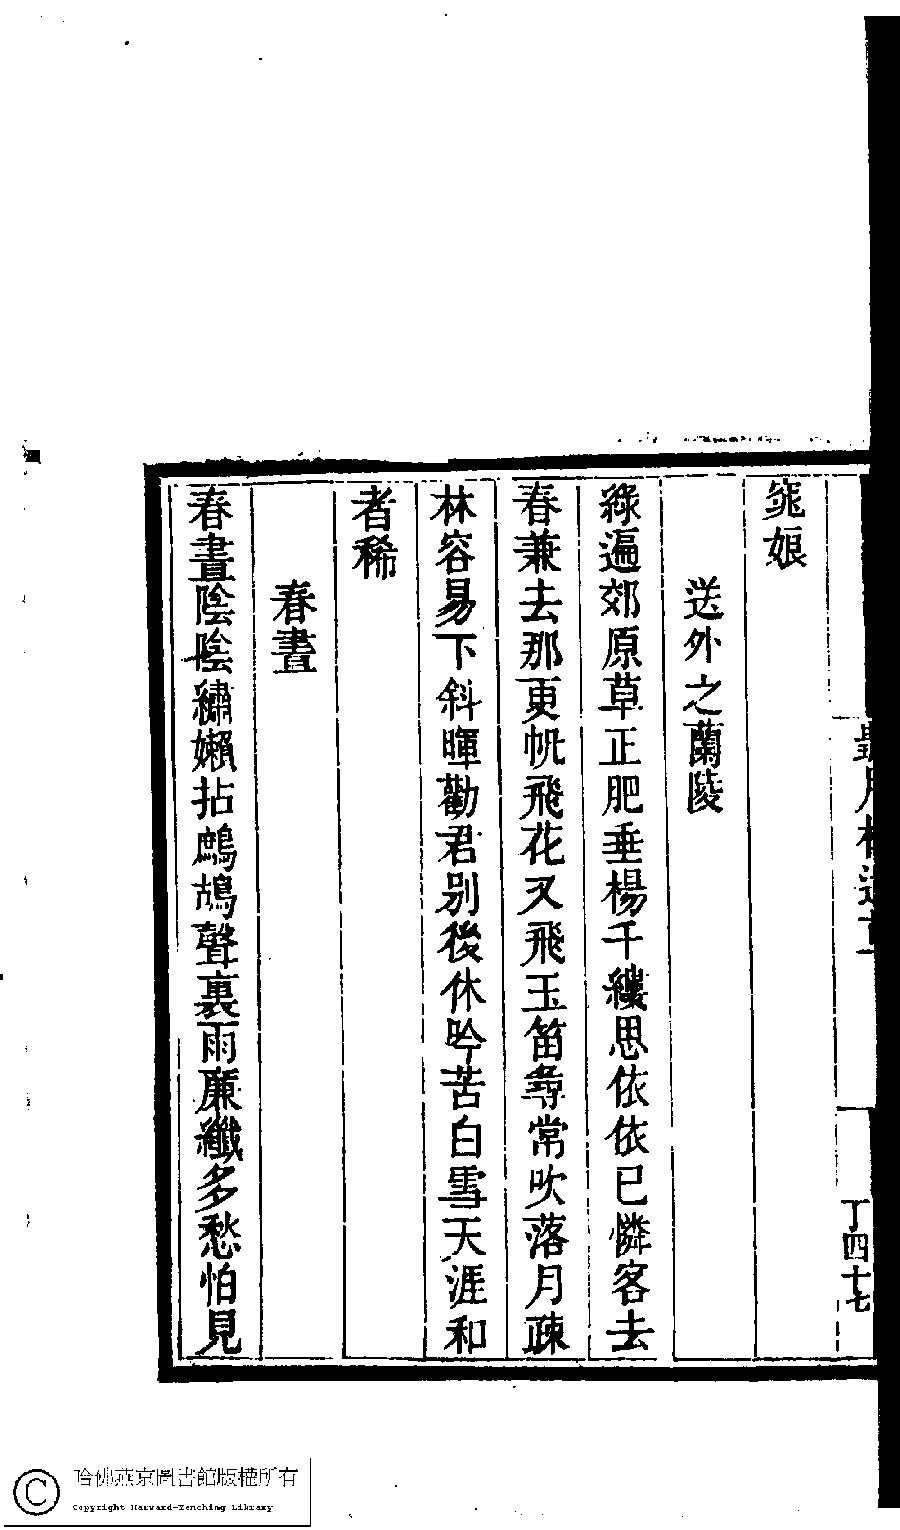 娘
送外之蘭陵
綠遍郊原草正肥垂楊千縷思依依已憐客去
春兼去那更帆飛花又飛玉笛尋常吹落月疎
林容易下斜暉勸君別後休吟苦白雪天涯和
者稀
春晝
春晝陰陰繡嬾拈鷓鴣聲裏雨廉纖多愁怕見
丁四十七
哈佛燕京圖書館版權所有
Copyright Harvard-Yenching Library